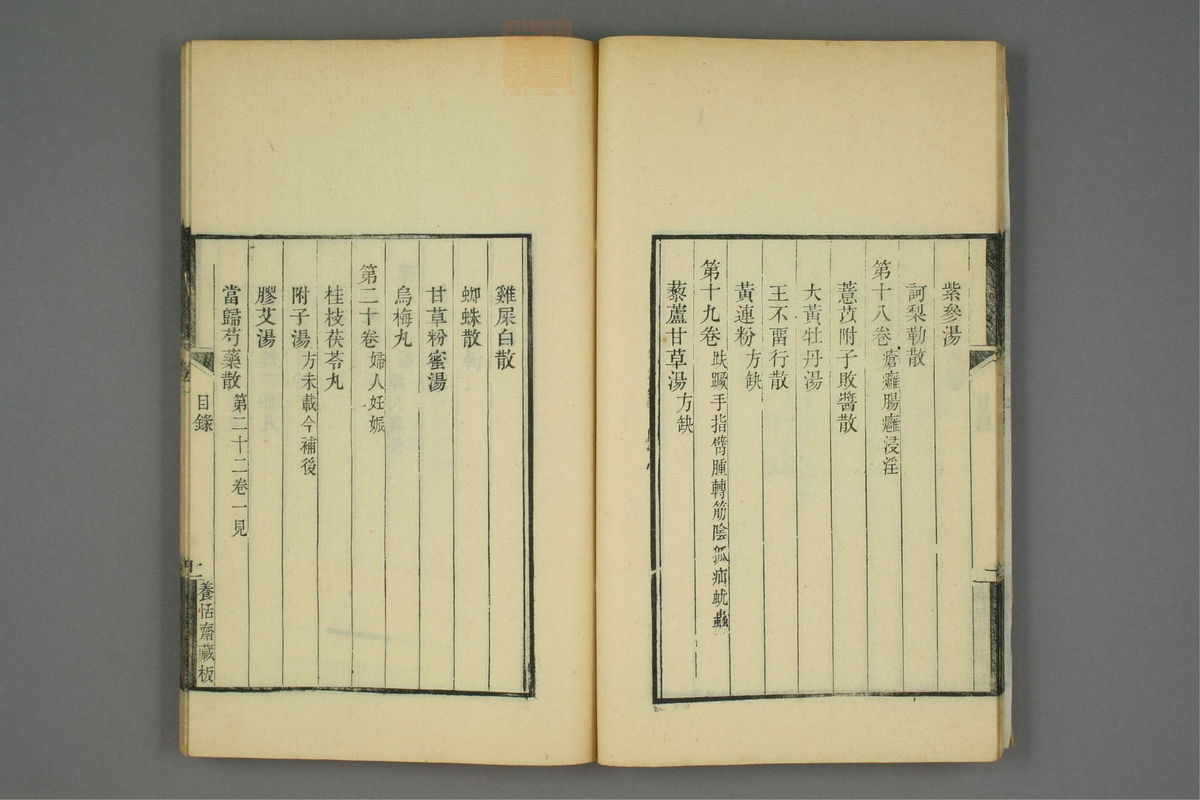 紫參湯
訶梨勒散
第十八卷 瘡癰腸癰浸淫
薏苡附子敗醬散
大黃牡丹湯
王不畱行散
黃連粉 方缺
第十九卷 趺蹶手指臂腫轉筋陰狐疝蚘蟲
藜蘆甘草湯 方缺
雞屎白散
蜘蛛散
甘草粉蜜湯
烏梅丸
第二十卷 婦人妊娠
桂枝茯苓丸
附子湯 方未載今補後
膠艾湯
當歸芍藥散 第二十二卷一見
目錄
養恬齋藏板